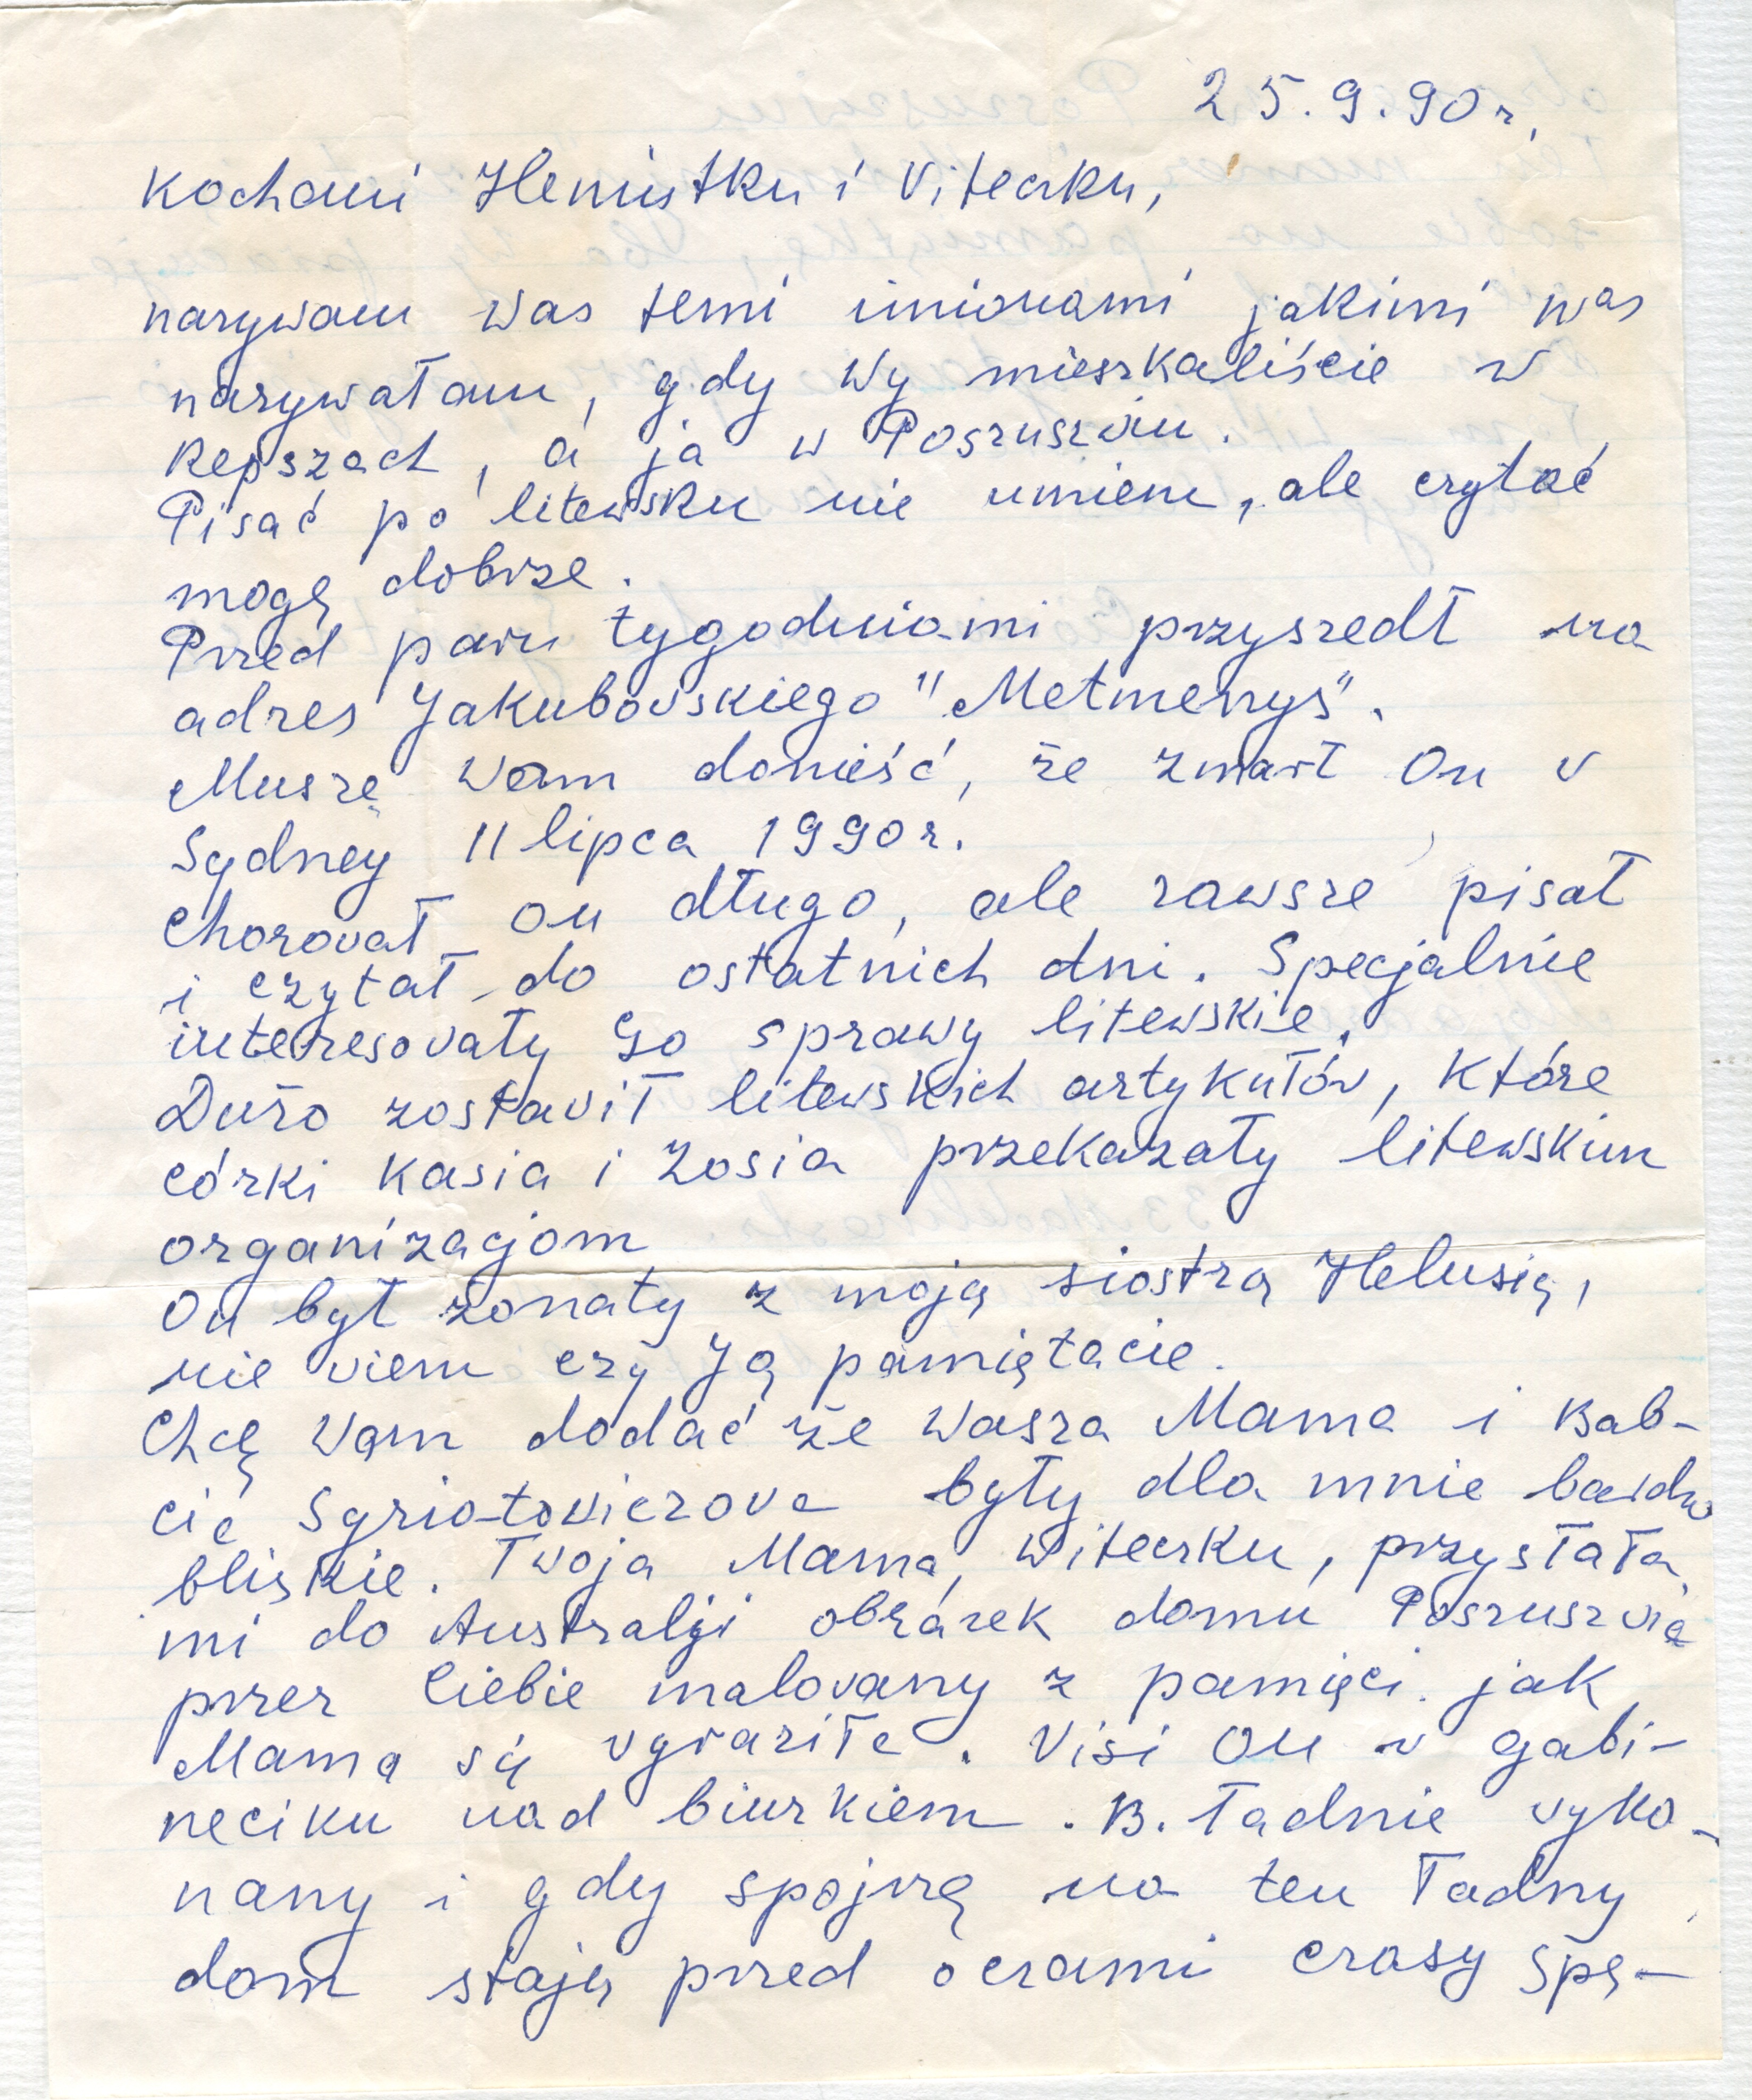 25.9.90r,
Kochani Heniutku i Viteczku,
nazywam was temi imionami jakimi was
nazywałam, gdy Wy mieszkaliście w
Repszach, a ja w Poszuszwiu.
Pisać po litewsku nie umiem, ale czytać
mogę dobrze.
Przed paru tygodniami przyszedł na
adres Jakubovskiego "Metmenys".
Muszę Wam donieść, że zmarł On v
Sydney 11 lipca 1990r.
Chorovał on długo, ale zawsze pisał
i czytał do ostatnich dni. Specjalnie
interesovały Go sprawy litewskie.
Dużo zostavił litewskich artykułóv, które
córki Kasia i Zosia przekazały litewskim
organizacjom
On był żonaty z moją siostrą Helusią,
nie viem czy Ją pamiętacie.
Chcę Vam dodać że Wasza Mama i Bab-
cia były dla mnie bardzo
bliskie. Twoja Mama, Witeczku, przysłała
mi do Australji obrazek domu Poszuszvia
przez Ciebie malovany z pamięci jak
Mama są vyraziła. Visi On v gabi-
neciku nad biurkiem. B. ładnie vyko-
nany i gdy spojrzę na ten ładny
dom stają przed oczami czasy spę-